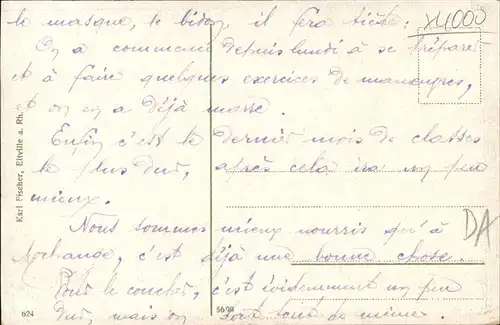 le masque, le bidon, il fera tiède :
On a commencé depuis lundi à se préparer
et à faire quelques exercices de manœuvres,
et on en a déjà marre.
Enfin c'est le dernier mois de classes
le plus dur, après cela ira un peu
mieux.
Nous sommes mieux nourris qu'à
Morhange, c'est déjà une bonne chose.
Pour le coucher, c'est évidemment un peu
dur, mais on dort tout de même.
x4000
DA
Karl Fischer, Eltville a. Rh.
624
5698